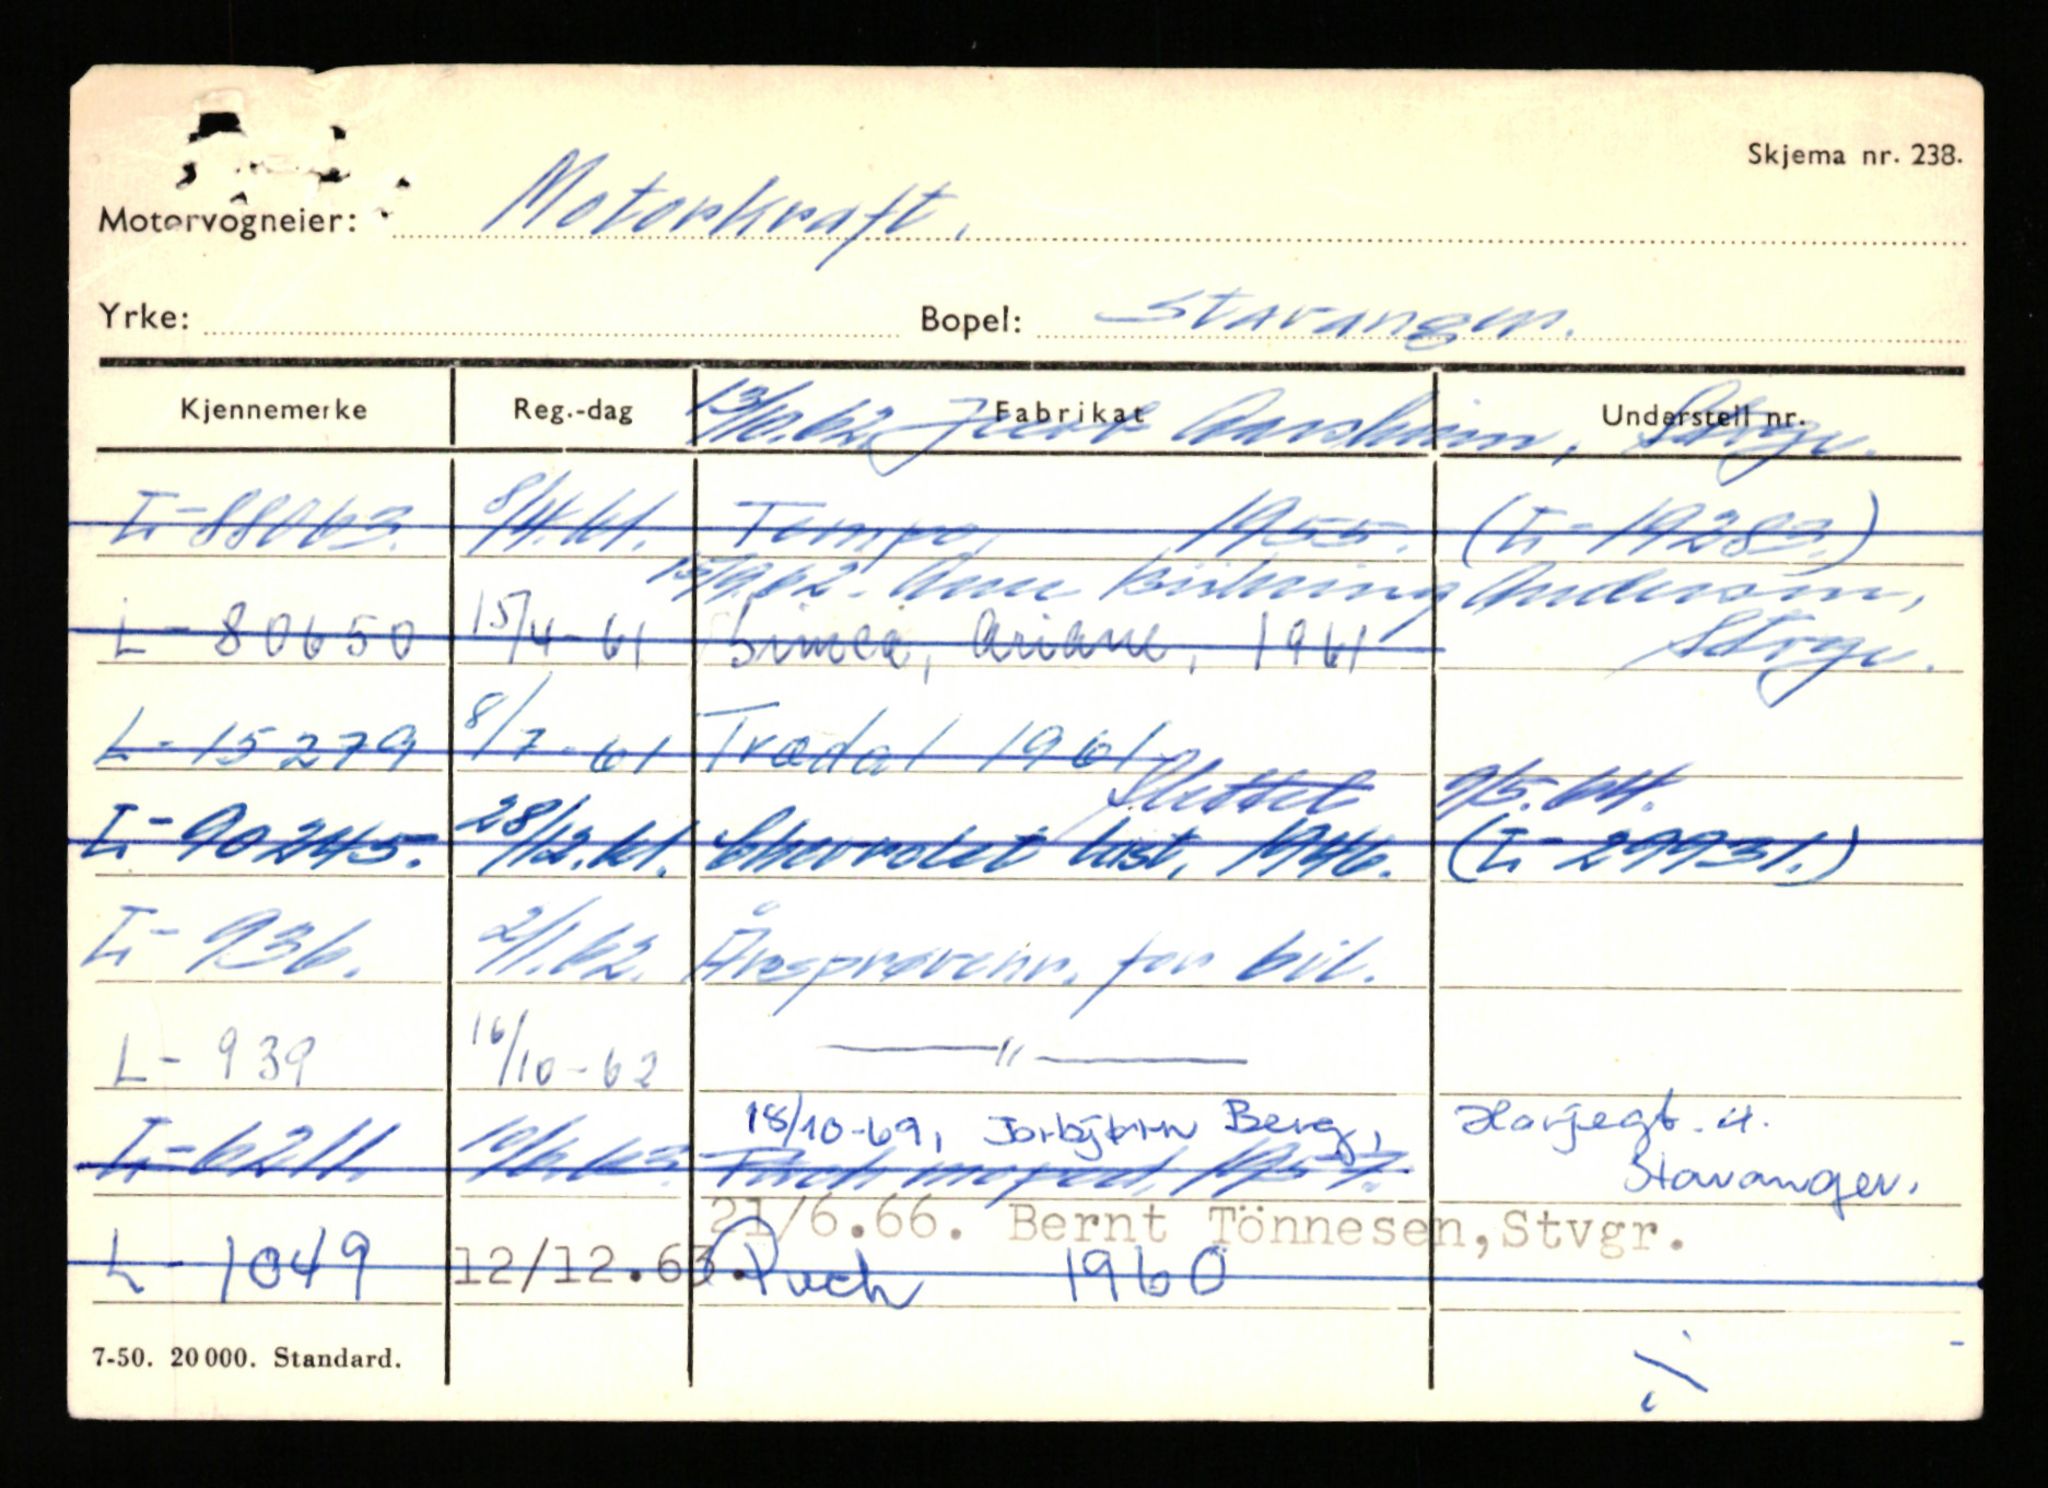 Skjema nr. 238.
Motorvogneier: Motorkraft.
Yrke: Bopel: Stavanger.
Kjennemerke Reg.-dag Fabrikat Understell nr.
13/10.62. Aarsheim, Stvgr.
L-88063. 8/4.61. Tempo, 1955. (L-19283.)
15/9.62. Anne Andersen,
L-80650 15/4-61 Simca, Ariane, 1961 Stvgr.
L-15279 8/7-61 Trædal 1961
Slettet 9/5.64.
L-90245. 28/12.61. Chevrolet last, 1946. (L-29931.)
L-936. 2/1.62. Årsprøvenr. for bil.
L-939 16/10-62 — " —
18/10-69, Torbjørn Berg, Harjegt. 21.
L-6211. 10/6.63. Puch moped, 1957. Stavanger.
21/6.66. Bernt Tönnesen,Stvgr.
L-1049 12/12.63. Puch 1960
7-50. 20 000. Standard.